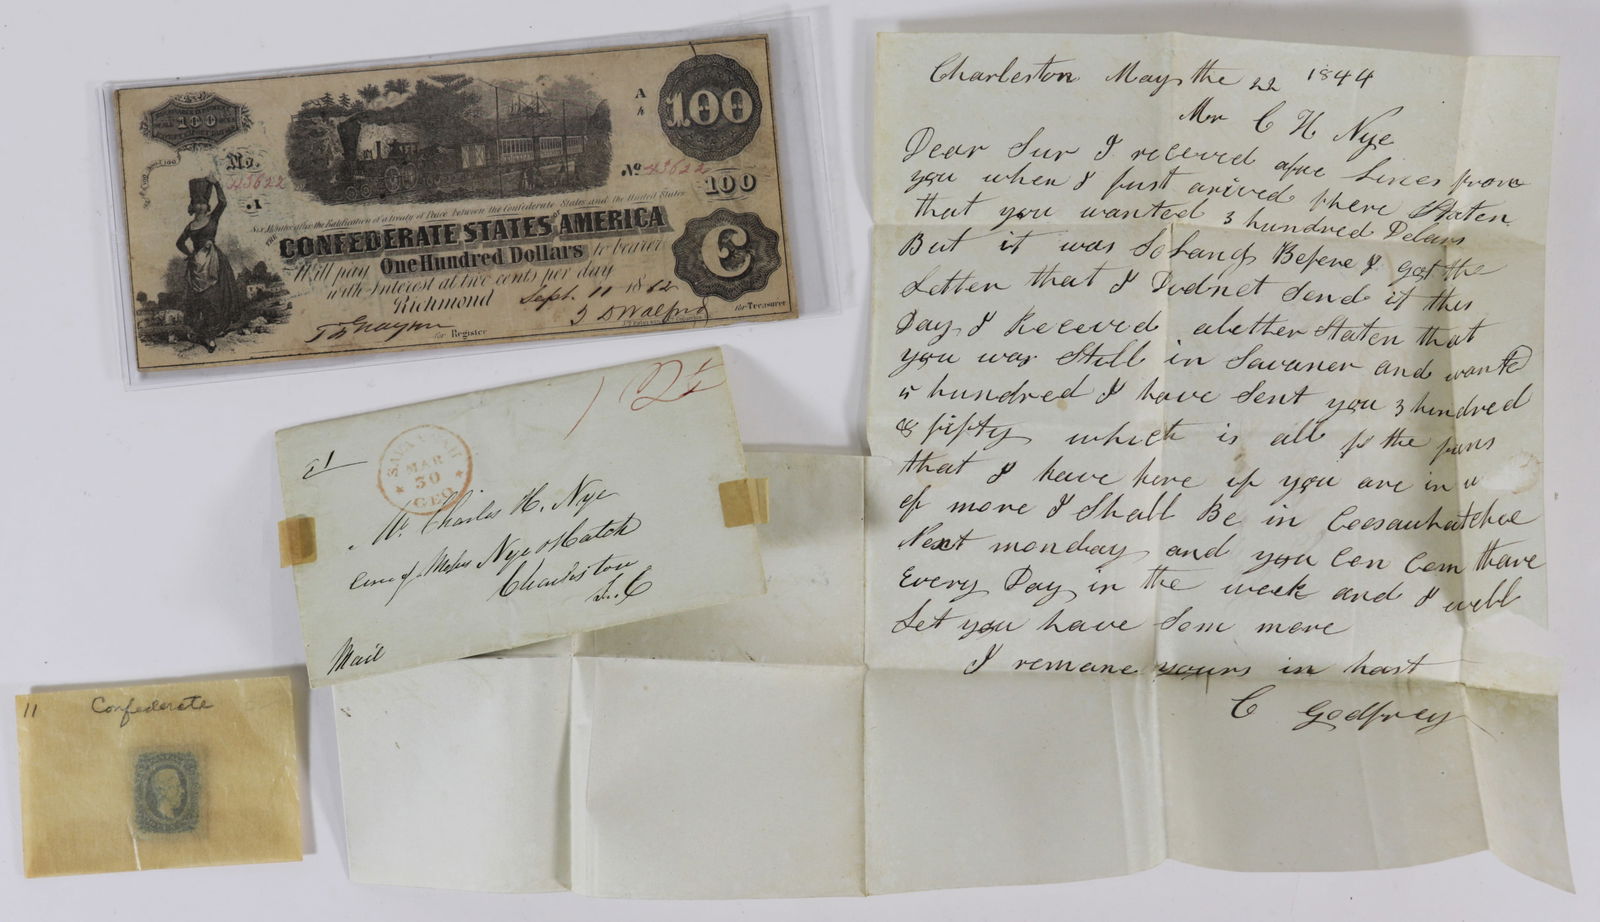 100
No.
43622
.1
A
100
No 43622
100
Six Months after the Ratification of a Treaty of Peace between the Confederate States and the United States
THE CONFEDERATE STATES OF AMERICA
Will pay One Hundred Dollars to bearer
with Interest at two cents per day
Richmond Sept. 11 1862
C
for Register
for Treasurer
Charleston May the 22 1844
Mr C H Nye
Dear Sur I receved a fue Lines from
you when I fust arived there Staten
that you wanted 3 hundred Dolars
But it was So Long Before I got the
Letter that I Didnet Send it this
Day I Receved a letter Staten that
you was Still in Savaner and wanted
5 hundred I have Sent you 3 hundred
& fifty which is all of the funs
that I have here if you are in
of more I Shall Be in Coosauhatchee
Next monday and you Can Com thare
Every Day in the week and I will
Let you have Som more
I remane yours in hast
C Godfrey
12½
SAVANNAH
MAR
30
GEO
Mr. Charles H. Nye
care of Messrs Nye & Hatch
Charleston
So. C
Mail
11
Confederate